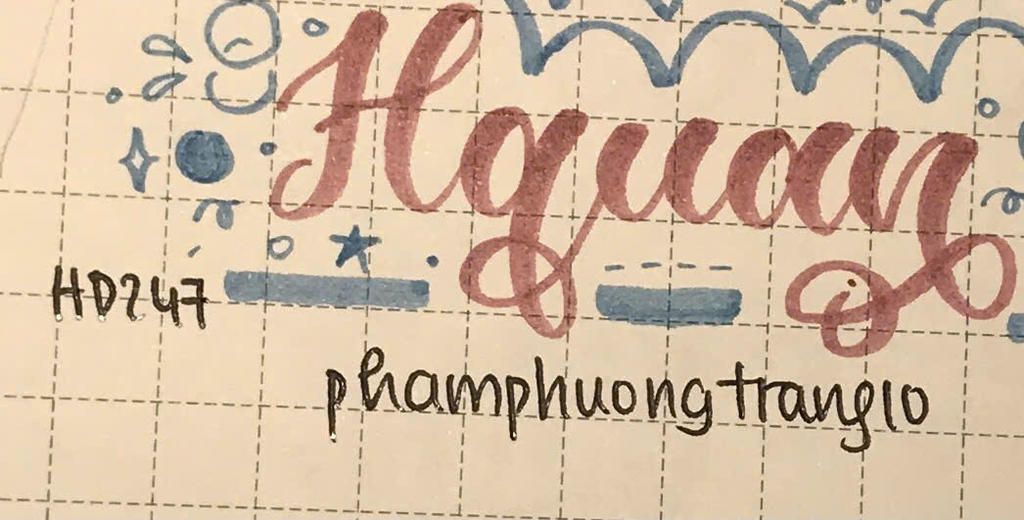 Hquan
HD247
phamphuongtrang10